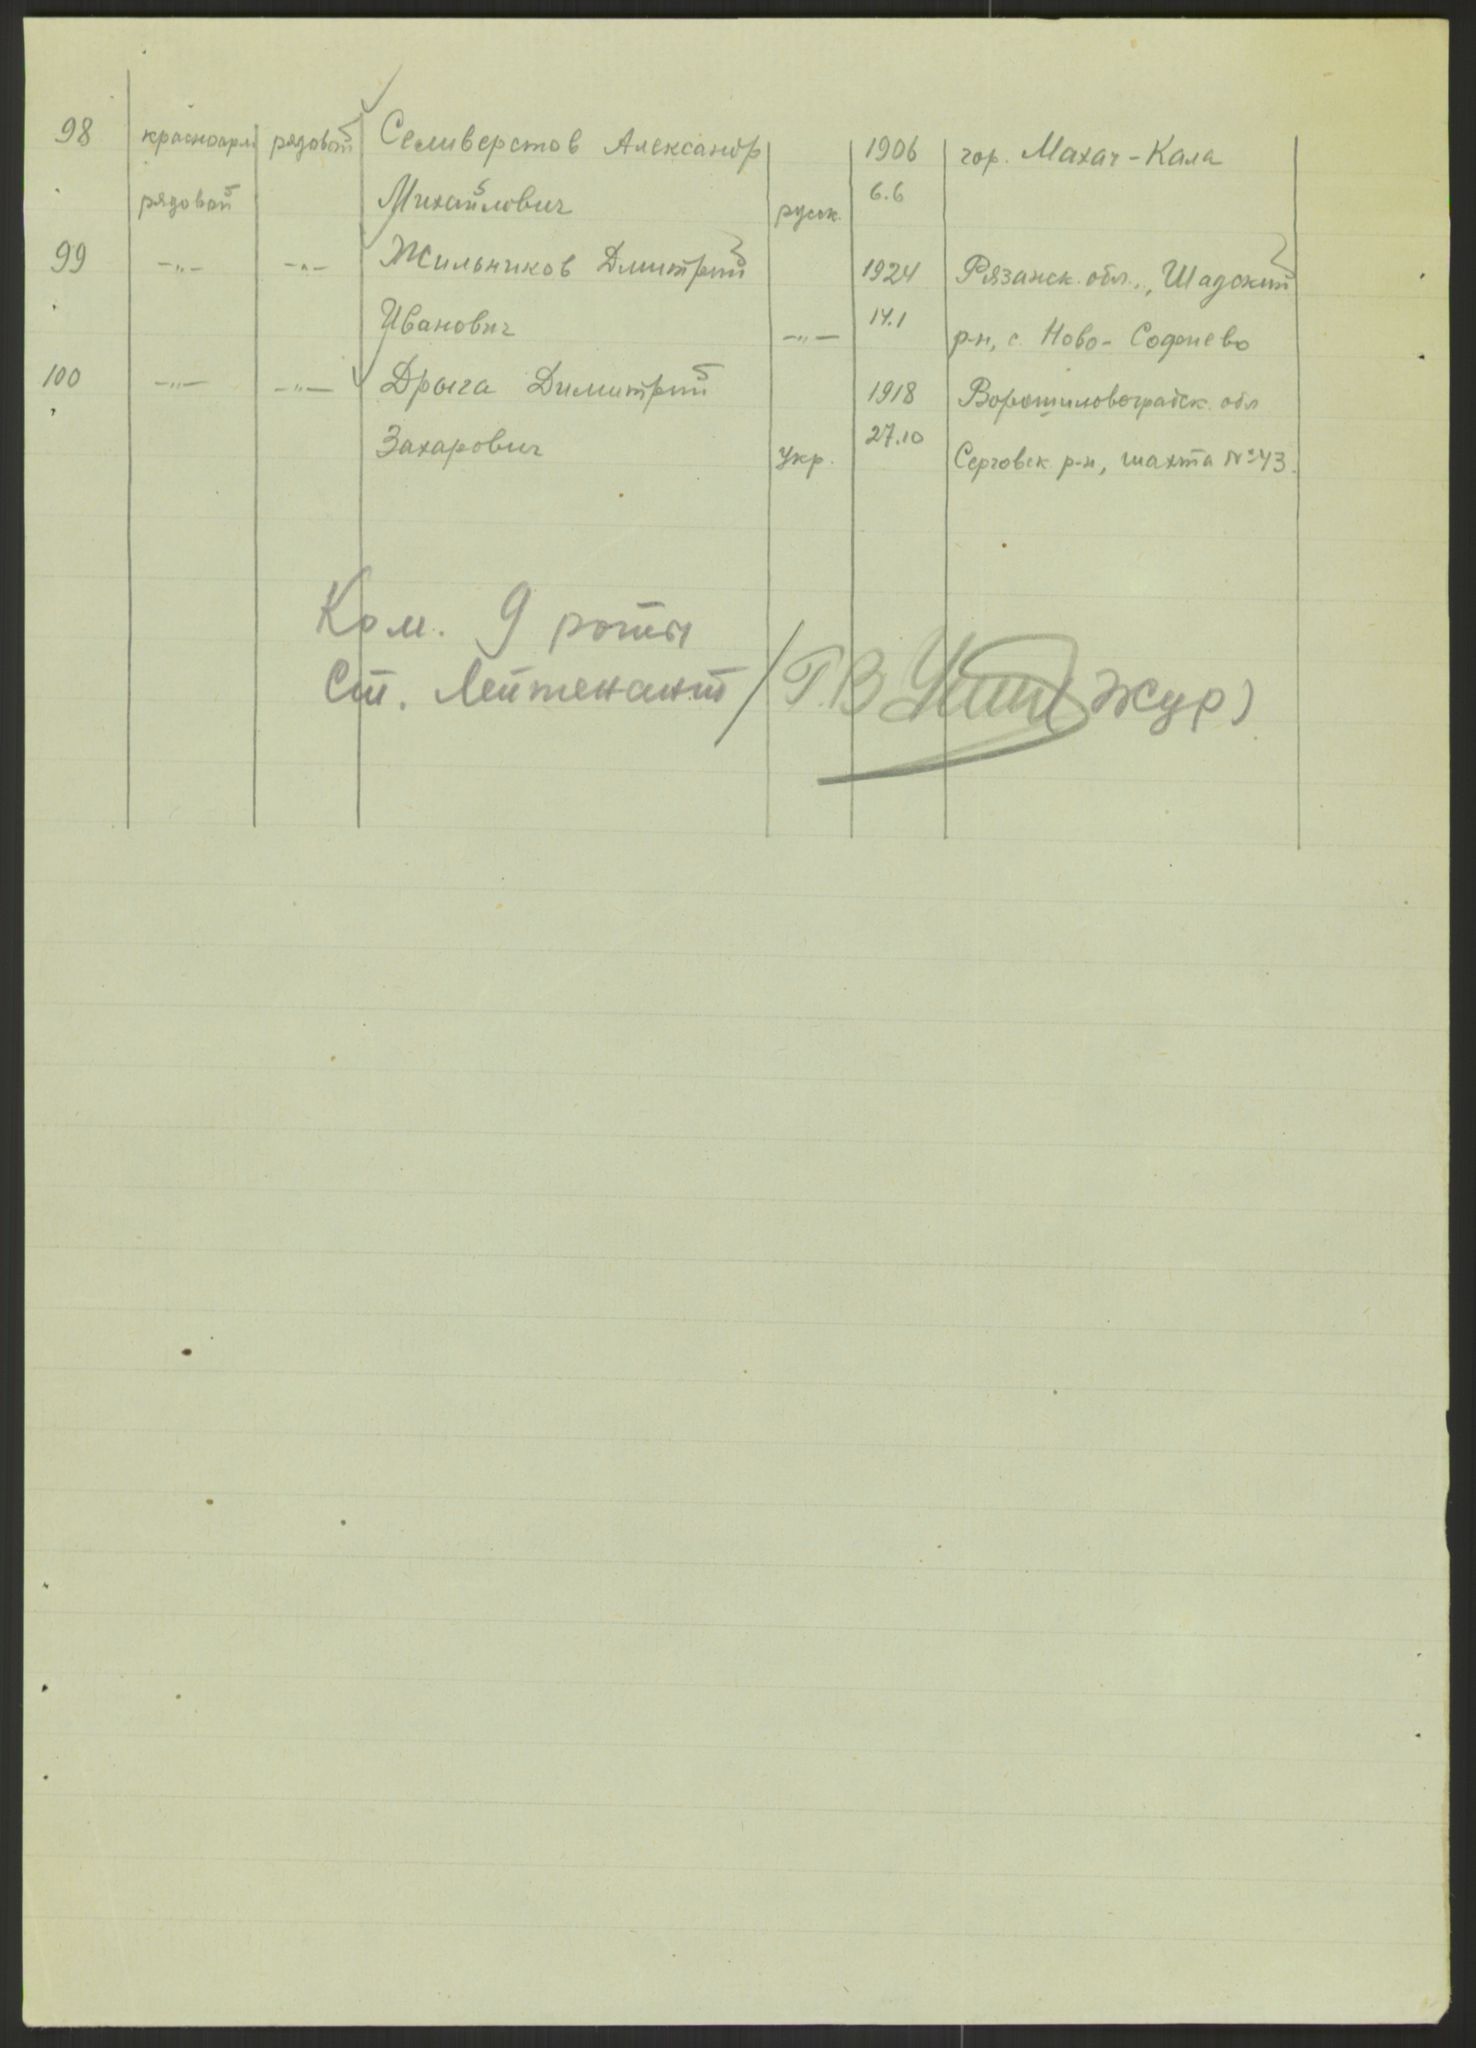 98 красноарм. рядовой Селиверстов Александр 1906 гор. Махач-Кала
рядовой Михайлович русск. 6.6
99 -"- -"- Жильников Дмитрий 1924 Рязанск. обл., Шадский
Иванович -"- 14.1 р-н, с. Ново-Софиево
100 -"- -"- Дрыга Димитрий 1918 Ворошиловоградск. обл
Захарович Укр. 27.10 Серговск. р-н, шахта №43.
Ком. 9 роты
Ст. Лейтенант / Г.В. (Жур)